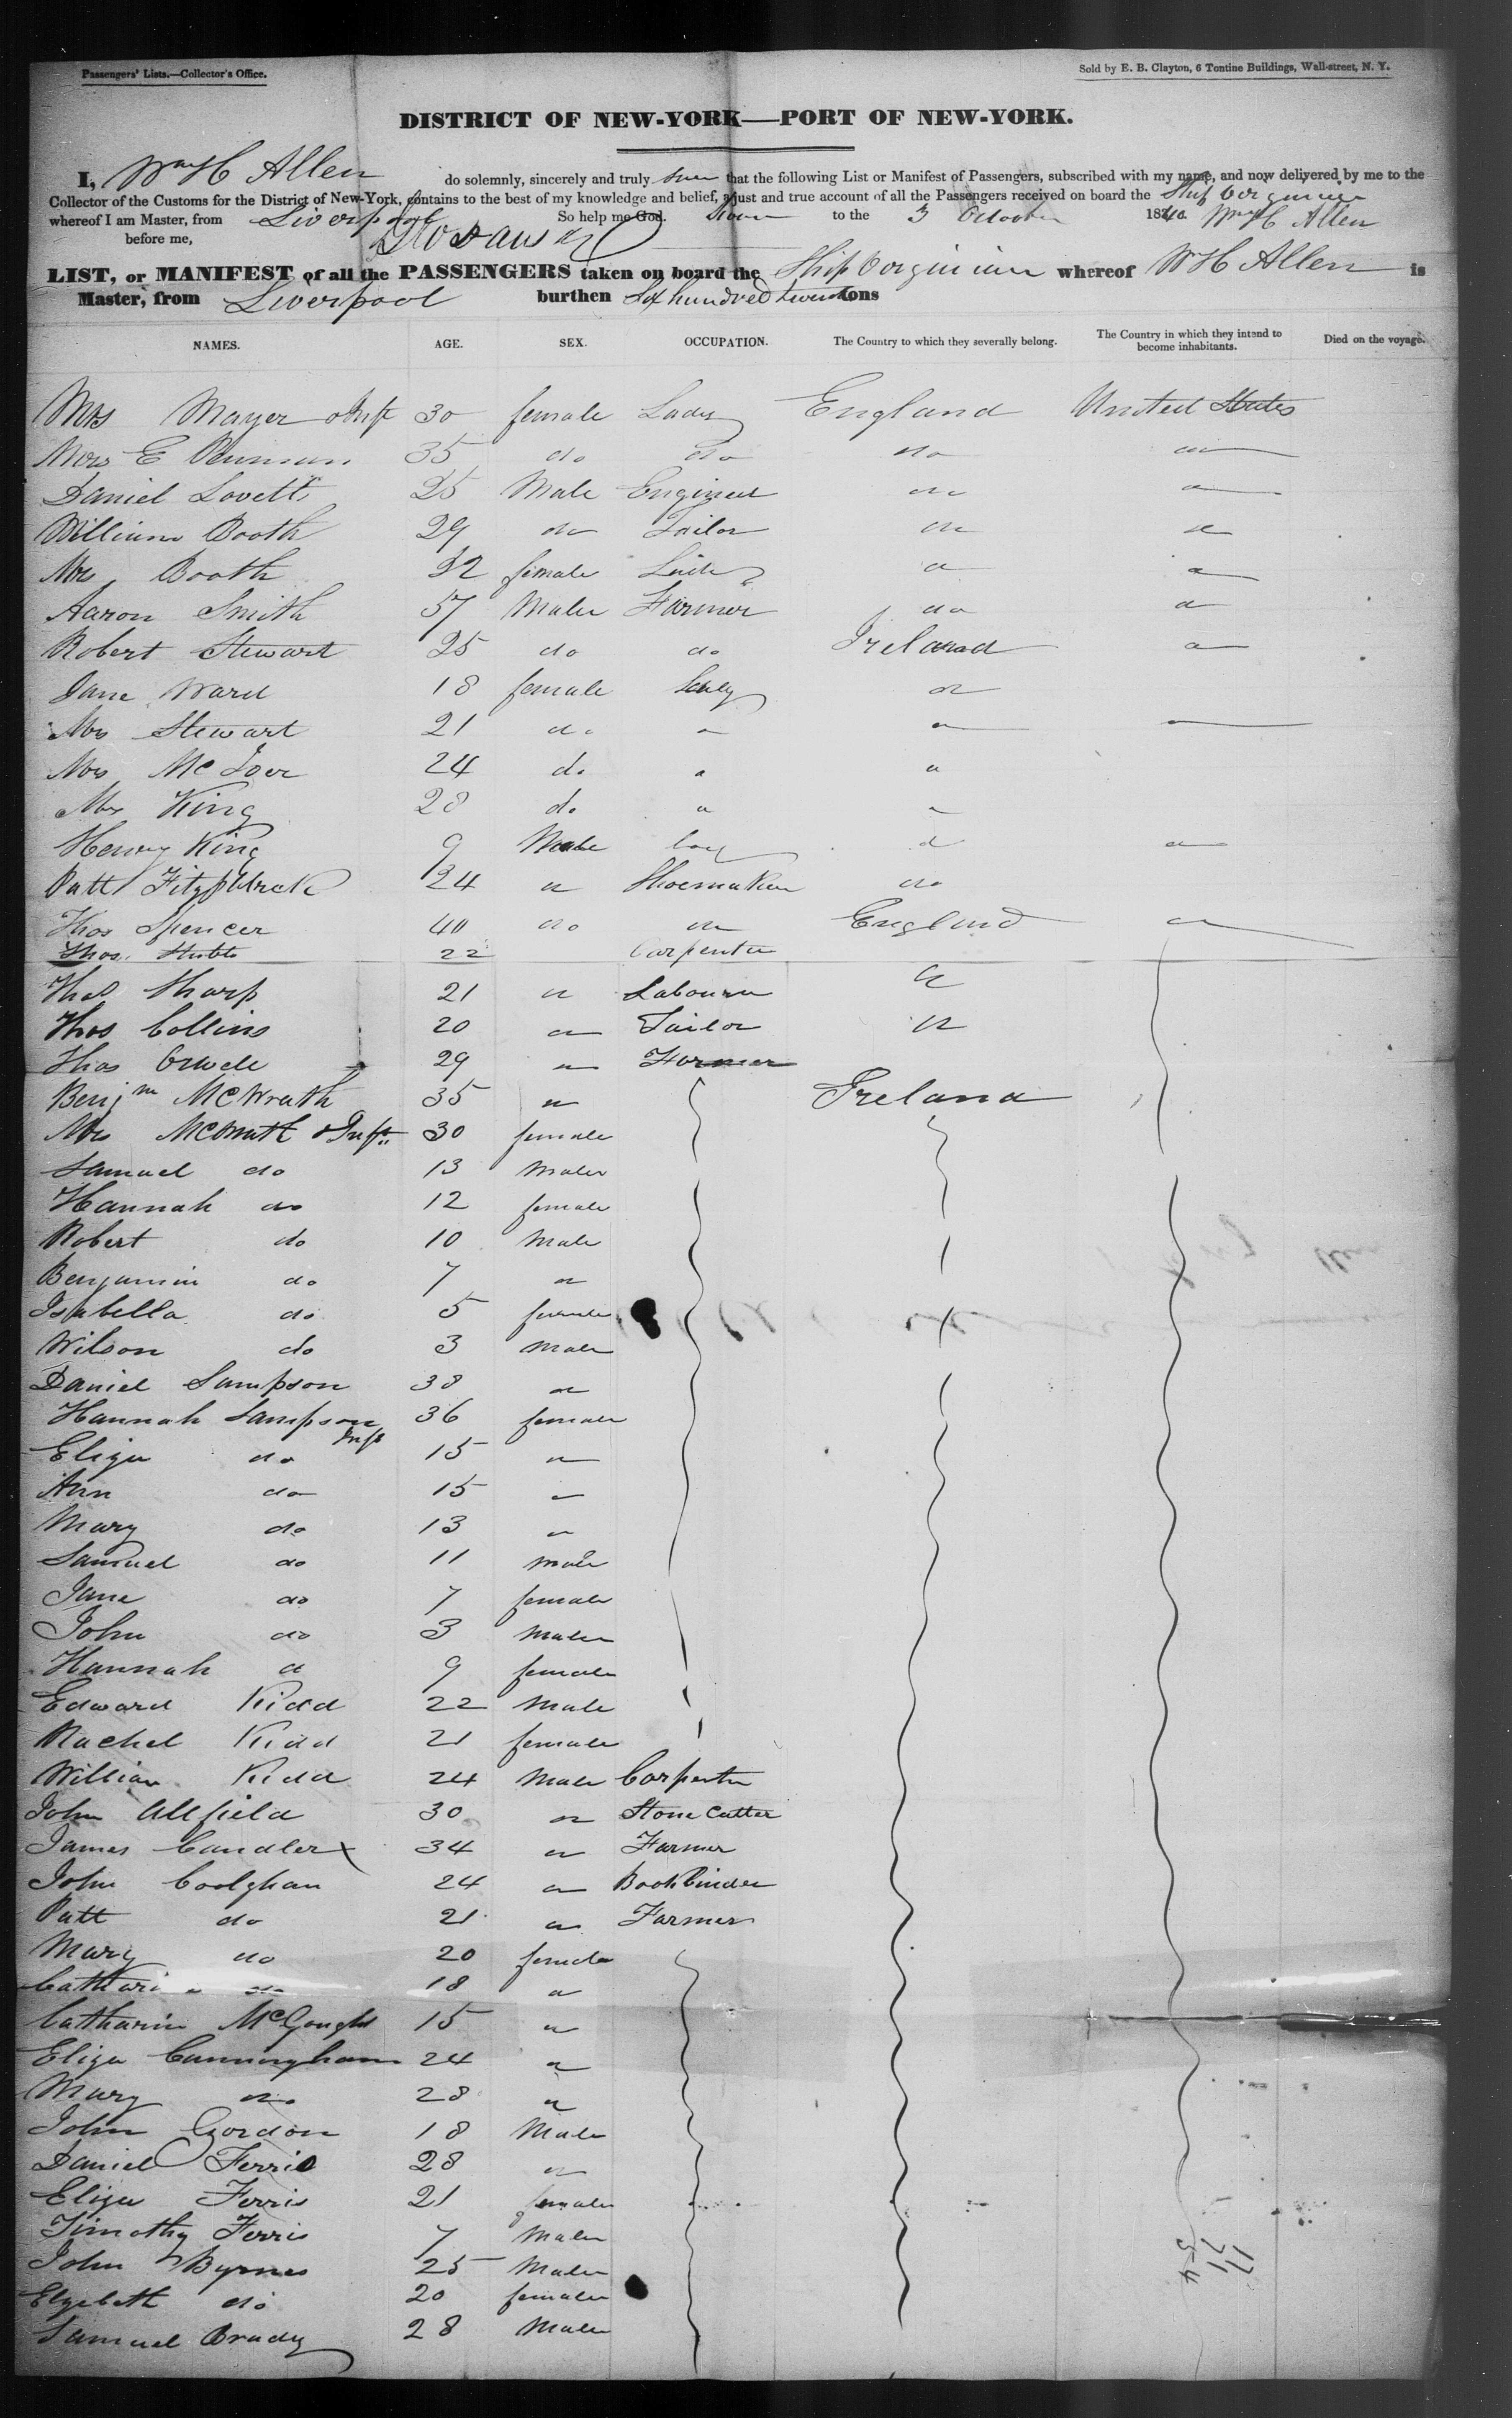 Passengers' Lists.—Collector's Office.
Sold by E. B. Clayton, 6 Tontine Buildings, Wall-street, N. Y.
DISTRICT OF NEW-YORK—PORT OF NEW-YORK.
I, Wm H Allen do solemnly, sincerely and truly that the following List or Manifest of Passengers, subscribed with my name, and now delivered by me to the
Collector of the Customs for the District of New-York, contains to the best of my knowledge and belief, a just and true account of all the Passengers received on board the Ship Virginian
whereof I am Master, from Liverpool So help me God. Sworn to the 3 October 1840 Wm H Allen
before me,
LIST, or MANIFEST of all the PASSENGERS taken on board the Ship Virginian whereof Wm H Allen is
Master, from Liverpool burthen Six hundred twenty tons
NAMES. AGE. SEX. OCCUPATION. The Country to which they severally belong. The Country in which they intend to become inhabitants. Died on the voyage.
Mrs Mayer & Inft 30 female Lady England United States
Mrs E Penman 35 do do do do
Daniel Lovett 25 Male Engineer do do
William Booth 29 do Tailor do do
Mrs Booth 32 female Lady do do
Aaron Smith 57 Male Farmer do do
Robert Stewart 25 do do Ireland do
Jane Ward 18 female Lady do
Mrs Stewart 21 do do do
Mrs 24 do do do
Mrs King 28 do do do
Henry King 9 Male boy do do
Patt Fitzpatrick 24 do Shoemaker do
Thos Spencer 40 do do England do
Thos Stubbs 22 Carpenter
Thos Sharp 21 do Labourer do
Thos Collins 20 do Tailor do
Thos 29 do Farmer
Benjm McWrath 35 do Ireland
Mrs McWrath & Inft 30 female
Samuel do 13 Male
Hannah do 12 female
Robert do 10 Male
Benjamin do 7 do
Isabella do 5 female
Wilson do 3 Male
Daniel Sampson 38 do
Hannah Sampson Inft 36 female
Eliza do 15 do
Ann do 15 do
Mary do 13 do
Samuel do 11 male
Jane do 7 female
John do 3 Male
Hannah do 9 female
Edward Kidd 22 Male
Rachel Kidd 21 female
William Kidd 24 Male Carpenter
John Allfield 30 do Stone Cutter
James Candler 34 do Farmer
John Coolghan 24 do Bookbinder
Patt do 21 do Farmer
Mary do 20 female
Catharine do 18 do
Catharin McGought 15 do
Eliza Cunningham 24 do
Mary do 28 do
John Gordon 18 Male
Daniel Ferris 28 do
Eliza Ferris 21 female
Timothy Ferris 7 Male
John Byrnes 25 Male
Elizebeth do 20 female
Samuel Brady 28 Male